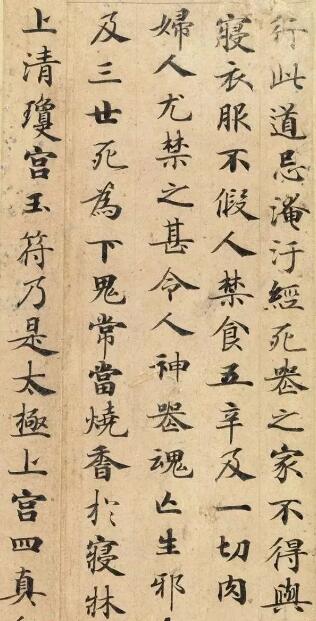 行此道忌淹汙經死喪之家不得與
寢衣服不假人禁食五辛及一切肉
婦人尤禁之甚令人神喪魂亡生邪
及三世死為下鬼常當燒香於寢牀
上清瓊宮玉符乃是太極上宮四真